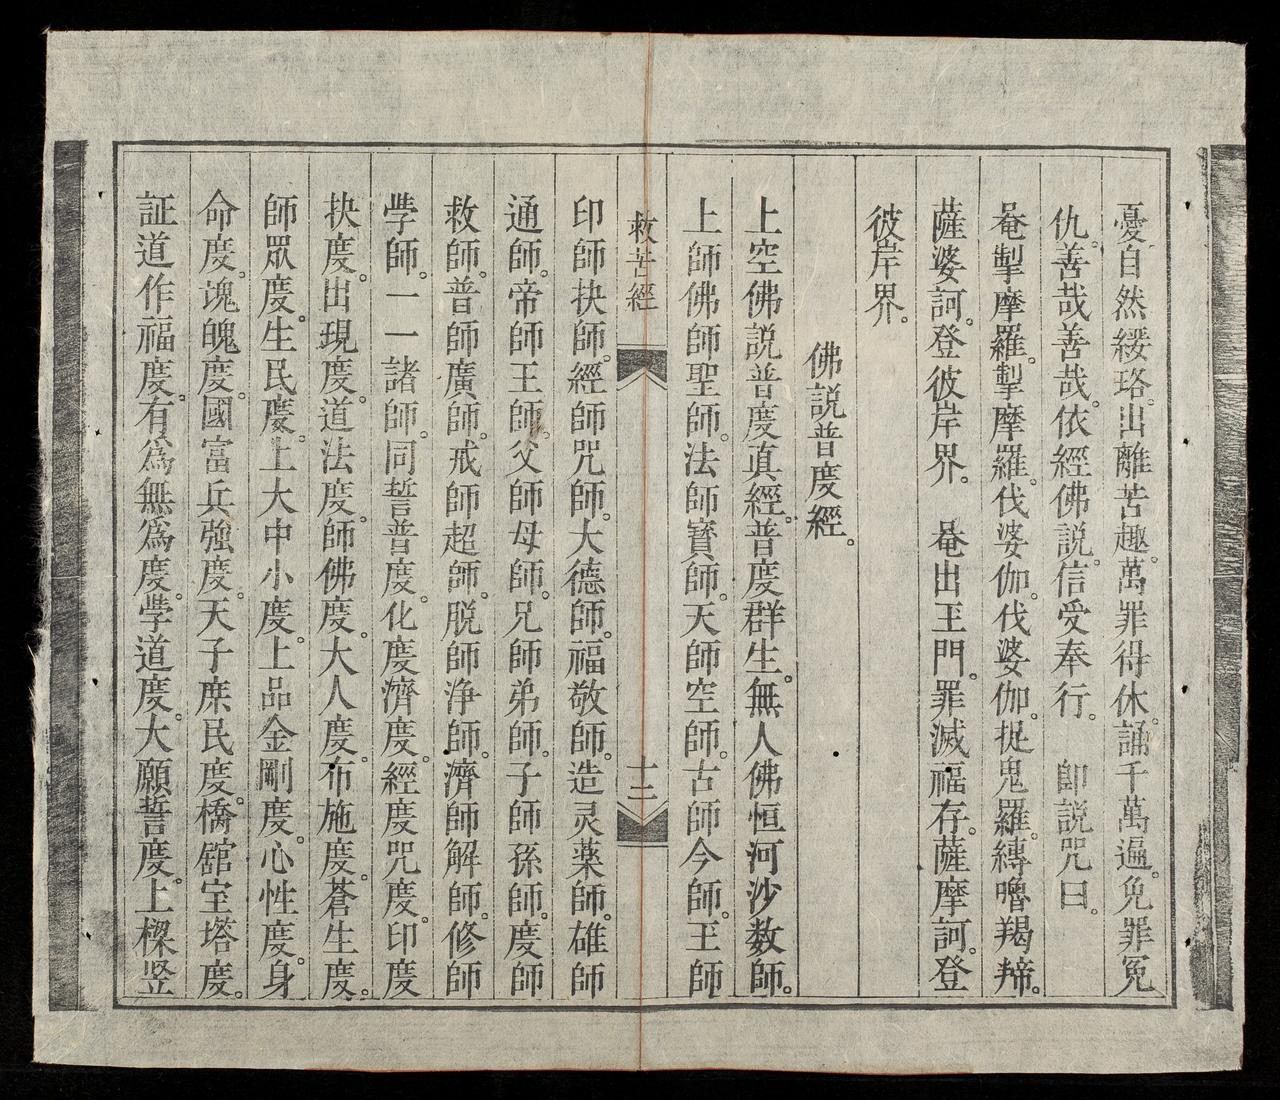 憂自然綬珞。出離苦趣。萬罪得休。誦千萬遍。免罪冤
仇。善哉善哉。依經佛說。信受奉行。 即說咒曰。
唵掣摩羅。掣摩羅。伐婆伽。伐婆伽。捉鬼羅。縛嚕羯諦。
薩婆訶。登彼岸界。 唵出王門。罪滅福存。薩摩訶。登
彼岸界。
佛説普度經。
上空佛説普度真經。普度群生。無人佛恒河沙数師。
上師佛師聖師。法師寳師。天師空師。古師今師。王師
救苦經
十二
印師抉師。經師咒師。大德師。福敬師。造灵薬師。雄師
通師。帝師王師。父師母師。兄師弟師。子師孫師。度師
救師。普師廣師。戒師超師。脱師浄師。濟師解師。修師
學師。一一諸師。同誓普度。化度濟度。經度咒度。印度
抉度。出現度。道法度。師佛度。大人度。布施度。蒼生度。
師眾度。生民度。上大中小度。上品金剛度。心性度。身
命度。魂魄度。國富兵強度。天子庶民度。橋舘室塔度。
証道作福度。有為無為度。學道度。大願誓度。上樑竖